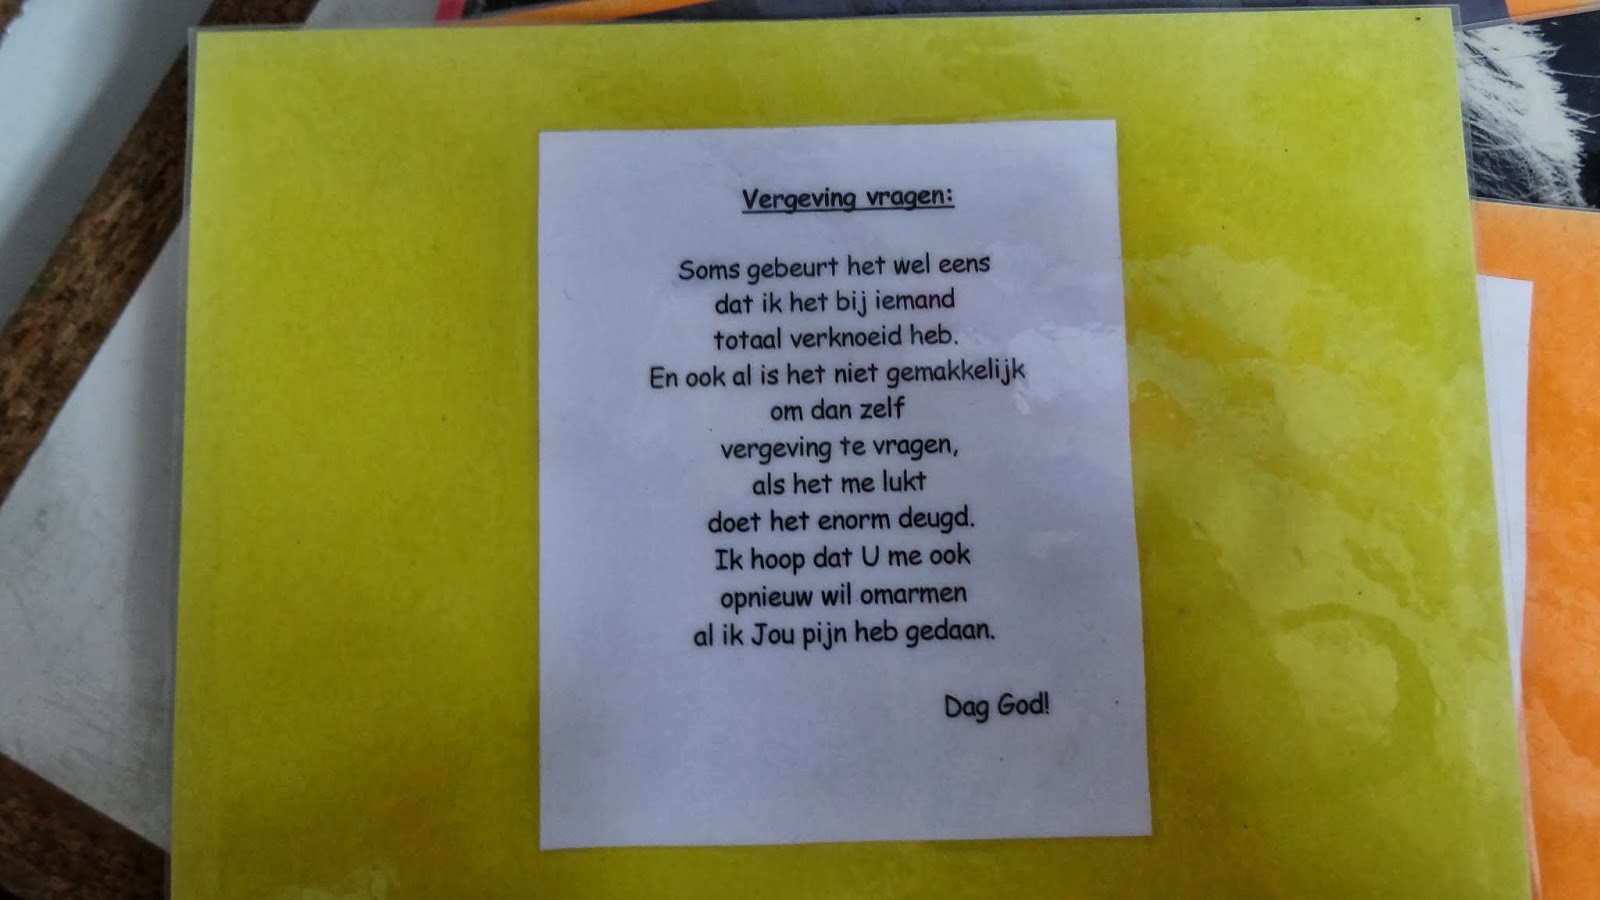 Vergeving vragen:
Soms gebeurt het wel eens
dat ik het bij iemand
totaal verknoeid heb.
En ook al is het niet gemakkelijk
om dan zelf
vergeving te vragen,
als het me lukt
doet het enorm deugd.
Ik hoop dat U me ook
opnieuw wil omarmen
al ik Jou pijn heb gedaan.
Dag God!